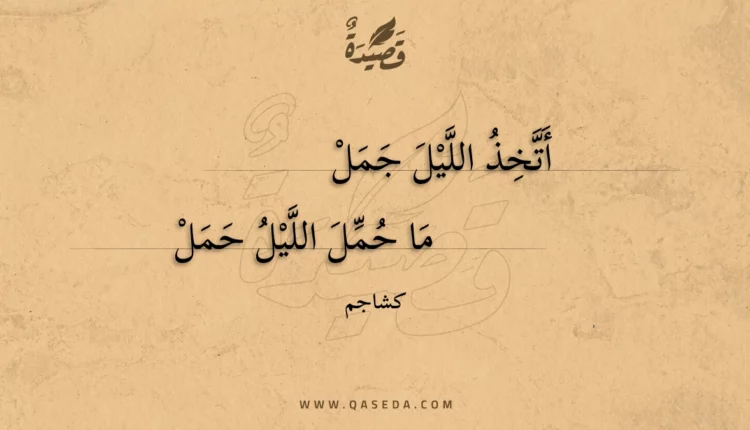 قَصِيدَةٌ
أَتَّخِذُ اللَّيْلَ جَمَلْ
مَا حُمِّلَ اللَّيْلُ حَمَلْ
كشاجم
WWW.QASEDA.COM